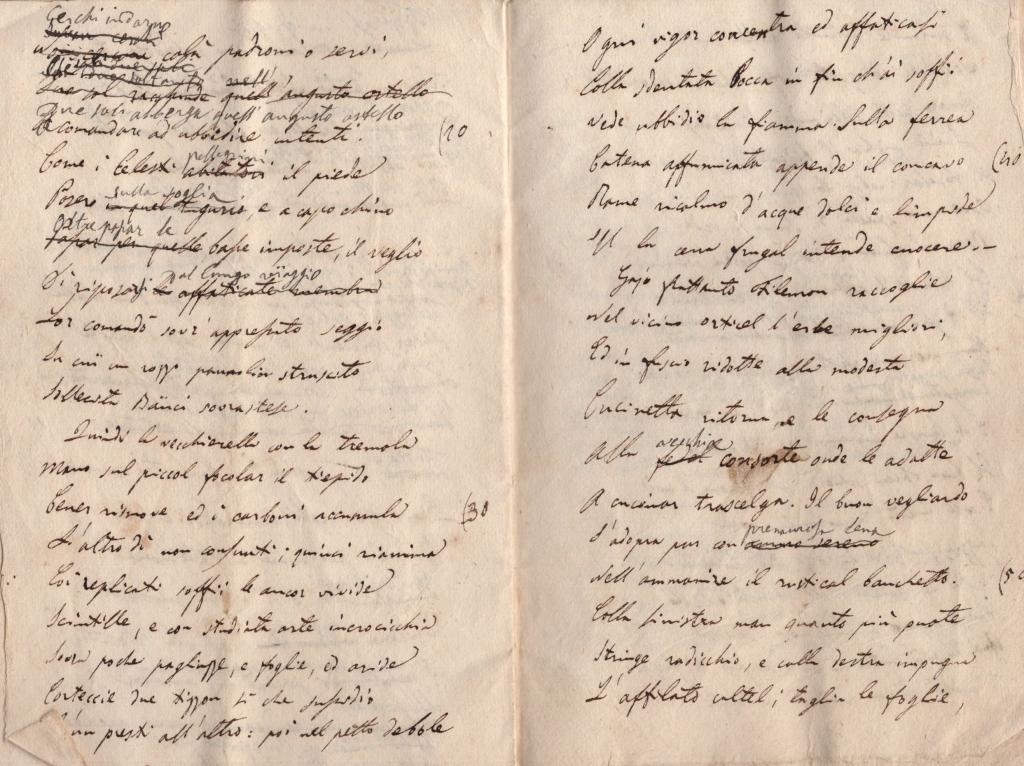 Cerchi indarno
colà padroni o servi,
Due soli alberga quest'angusto ostello
A comandare ad ubbidire intenti. (20
Come i Celesti pellegrini il piede
Posero sulla soglia, e a capo chino
Oltrepassar le basse imposte, il veglio
Di riposarsi dal lungo viaggio
Lor comandò sovr'appressato seggio
In cui un rozzo pannolin struscito
Sollecita Bauci sovrastese.
Quindi la vecchierella con la tremola
Mano sul piccol focolar il tiepido
Cener rismove ed i carboni accumula (30
L'altro dì non consunti; quinci rianima
Coi replicati soffii le ancor vivide
Scintille, e con studiata arte incrocicchia
Sovra poche pagliuzze, e foglie, ed aride
Corteccie due tizzon sì che sussidio
L'un presti all'altro: poi nel petto debole
Ogni vigor concentra ed affaticasi
Colla sdentata bocca in fin ch'ai soffii
Vede ubbidir la fiamma. Sulla ferrea
Catena affumicata appende il concavo (40
Rame ricolmo d'acque dolci e limpide
Ove la cena frugal intende cuocere. —
Gajo frattanto Filemon raccoglie
Nel vicino orticel l'erbe migliori,
Ed in fascio ridotte alla modesta
Cucinetta ritorna, e le consegna
Alla vecchia consorte onde le adatte
A cucinar trascelga. Il buon vegliardo
S'adopra pur con premurosa lena
Nell'ammanire il rustical banchetto. (50
Colla sinistra man quanto più puote
Stringe radicchio, e colla destra impugna
L'affilato coltel; taglia le foglie,